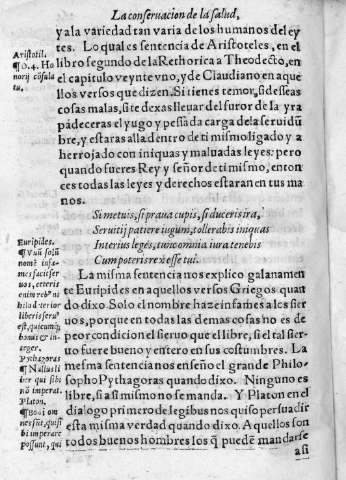 La conseruacion de la salud,
y a la variedad tan varia de los humanos del ey
tes. Lo qual es sentencia de Aristoteles, en el
libro segundo de la Rethorica a Theodecto, en
el capitulo veynte vno, y de Claudiano en aque
llos versos que dizen. Si tienes temor, si desseas
cosas malas, si te dexas lleuar del furor de la yra
padeceras el yugo y pessada carga de la seruidũ
bre, y estaras alla dentro de ti mismo ligado y a
herrojado con iniquas y maluadas leyes: pero
quando fueres Rey y señor de ti mismo, enton
ces todas las leyes y derechos estaran en tus ma
nos.
Si metuis, si praua cupis, si duceris ira,
Seruitij patiere iugum, tollerabis iniquas
Interius legés, tunc omnia iura tenebis
Cum poteris rex esse tui.
La misma sentencia nos explico galanamen
te Euripides en aquellos versos Griegos quan
do dixo. Solo el nombre haze infames a los sier
uos, porque en todas las demas cosas no es de
peor condicion el sieruo que el libre, si el tal sier-
uo fuere bueno y entero en sus costumbres. La
mesma sentencia nos enseño el grande Philo-
sopho Pythagoras quando dixo. Ninguno es
libre, si a si mismo no se manda. Y Platon en el
dialogo primero de legibus nos quiso persuadir
esta misma verdad quando dixo. Aquellos son
todos buenos hombres los q̃ puedẽ mandarse
a si
Aristotil.
¶ D. 4. Ho
norij cõsula
tu.
Euripides.
¶ Vnũ solũ
nomẽ infa-
mes facit ser
uos, cęteris
enim rebꝰ ni
hilo deterior
liberis seruꝰ
est, quicumq;
bonus & in
teger.
Pythagoras
¶ Nullus li
ber qui sibi
nõ imperat.
Platon.
¶ Boni om
nes sũt, qui si
bi imperare
possunt, qui